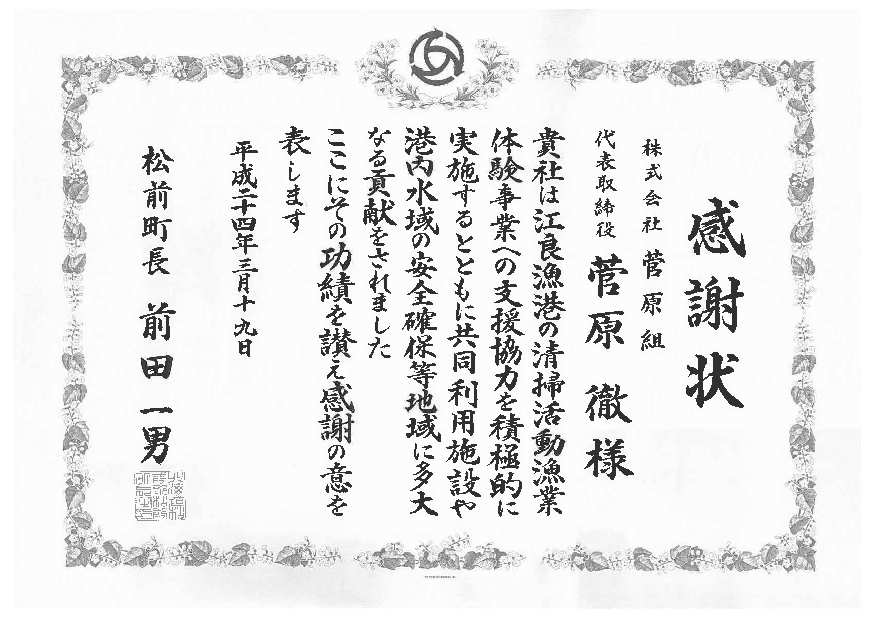 感謝状
株式会社 菅原組
代表取締役 菅原 徹様
貴社は江良漁港の清掃活動漁業
体験事業への支援協力を積極的に
実施するとともに共同利用施設や
港内水域の安全確保等地域に多大
なる貢献をされました
ここにその功績を讃え感謝の意を
表します
平成二十四年三月十九日
松前町長 前田一男